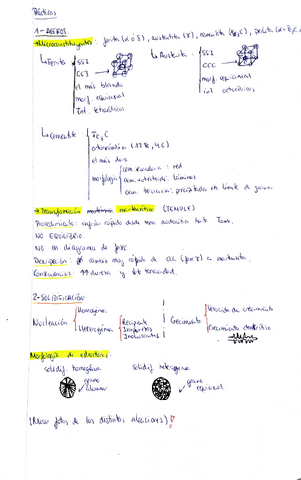 Prácticas
1- ACEROS.
→ Microconstituyentes: ferrita (α o δ), austenita (γ), cementita (Fe3C), perlita (α+Fe3C)
→ Ferrita { SSI
CCI
el más blando
morf. equiaxial
int. tetraédricos
→ Austenita { SSI
CCC
morf. equiaxial
int. octaédricos
→ Cementita { Fe3C
ortorrómbica (12Fe, 4C)
el más duro
morfología { cem. secundaria: red
cem. eutectoide: láminas
cem. terciaria: precipitados en límite de grano
→ Transformación martensítica (TEMPLE)
Procedimiento: enfriar rápido desde zona austenítica hasta Tamb.
NO EQUILIBRIO
NO en diagramas de fase
Descripción: cambio muy rápido de CCC (fase γ) a martensita.
Consecuencias: ↑↑ dureza y ↓↓ tenacidad.
2-SOLIDIFICACIÓN
Nucleación { Homogénea
Heterogénea { Recipiente
Impurezas
Inoculantes
Crecimiento { Velocidad de crecimiento
Crecimiento dendrítico
Morfología de estructuras:
solidif. homogénea
grano columnar
solidif. heterogénea
grano equiaxial
(Mirar fotos de las distintas aleaciones)!